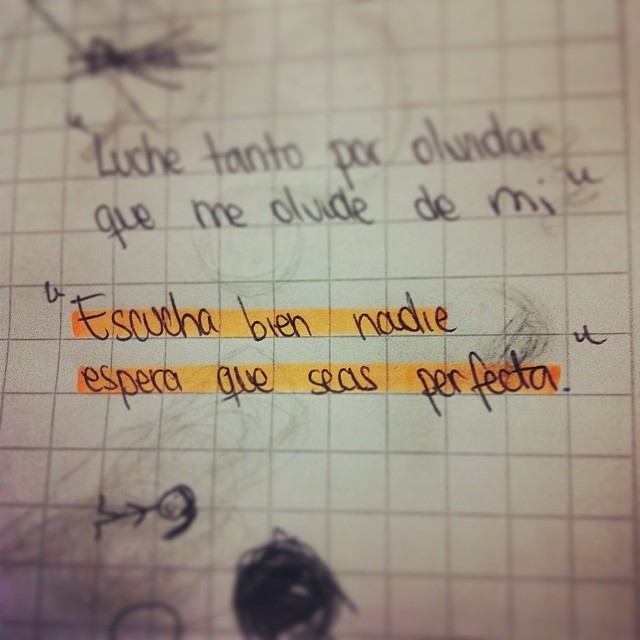 "Luche tanto por olvidar
que me olvide de mi"
"Escucha bien nadie
espera que seas perfecta."